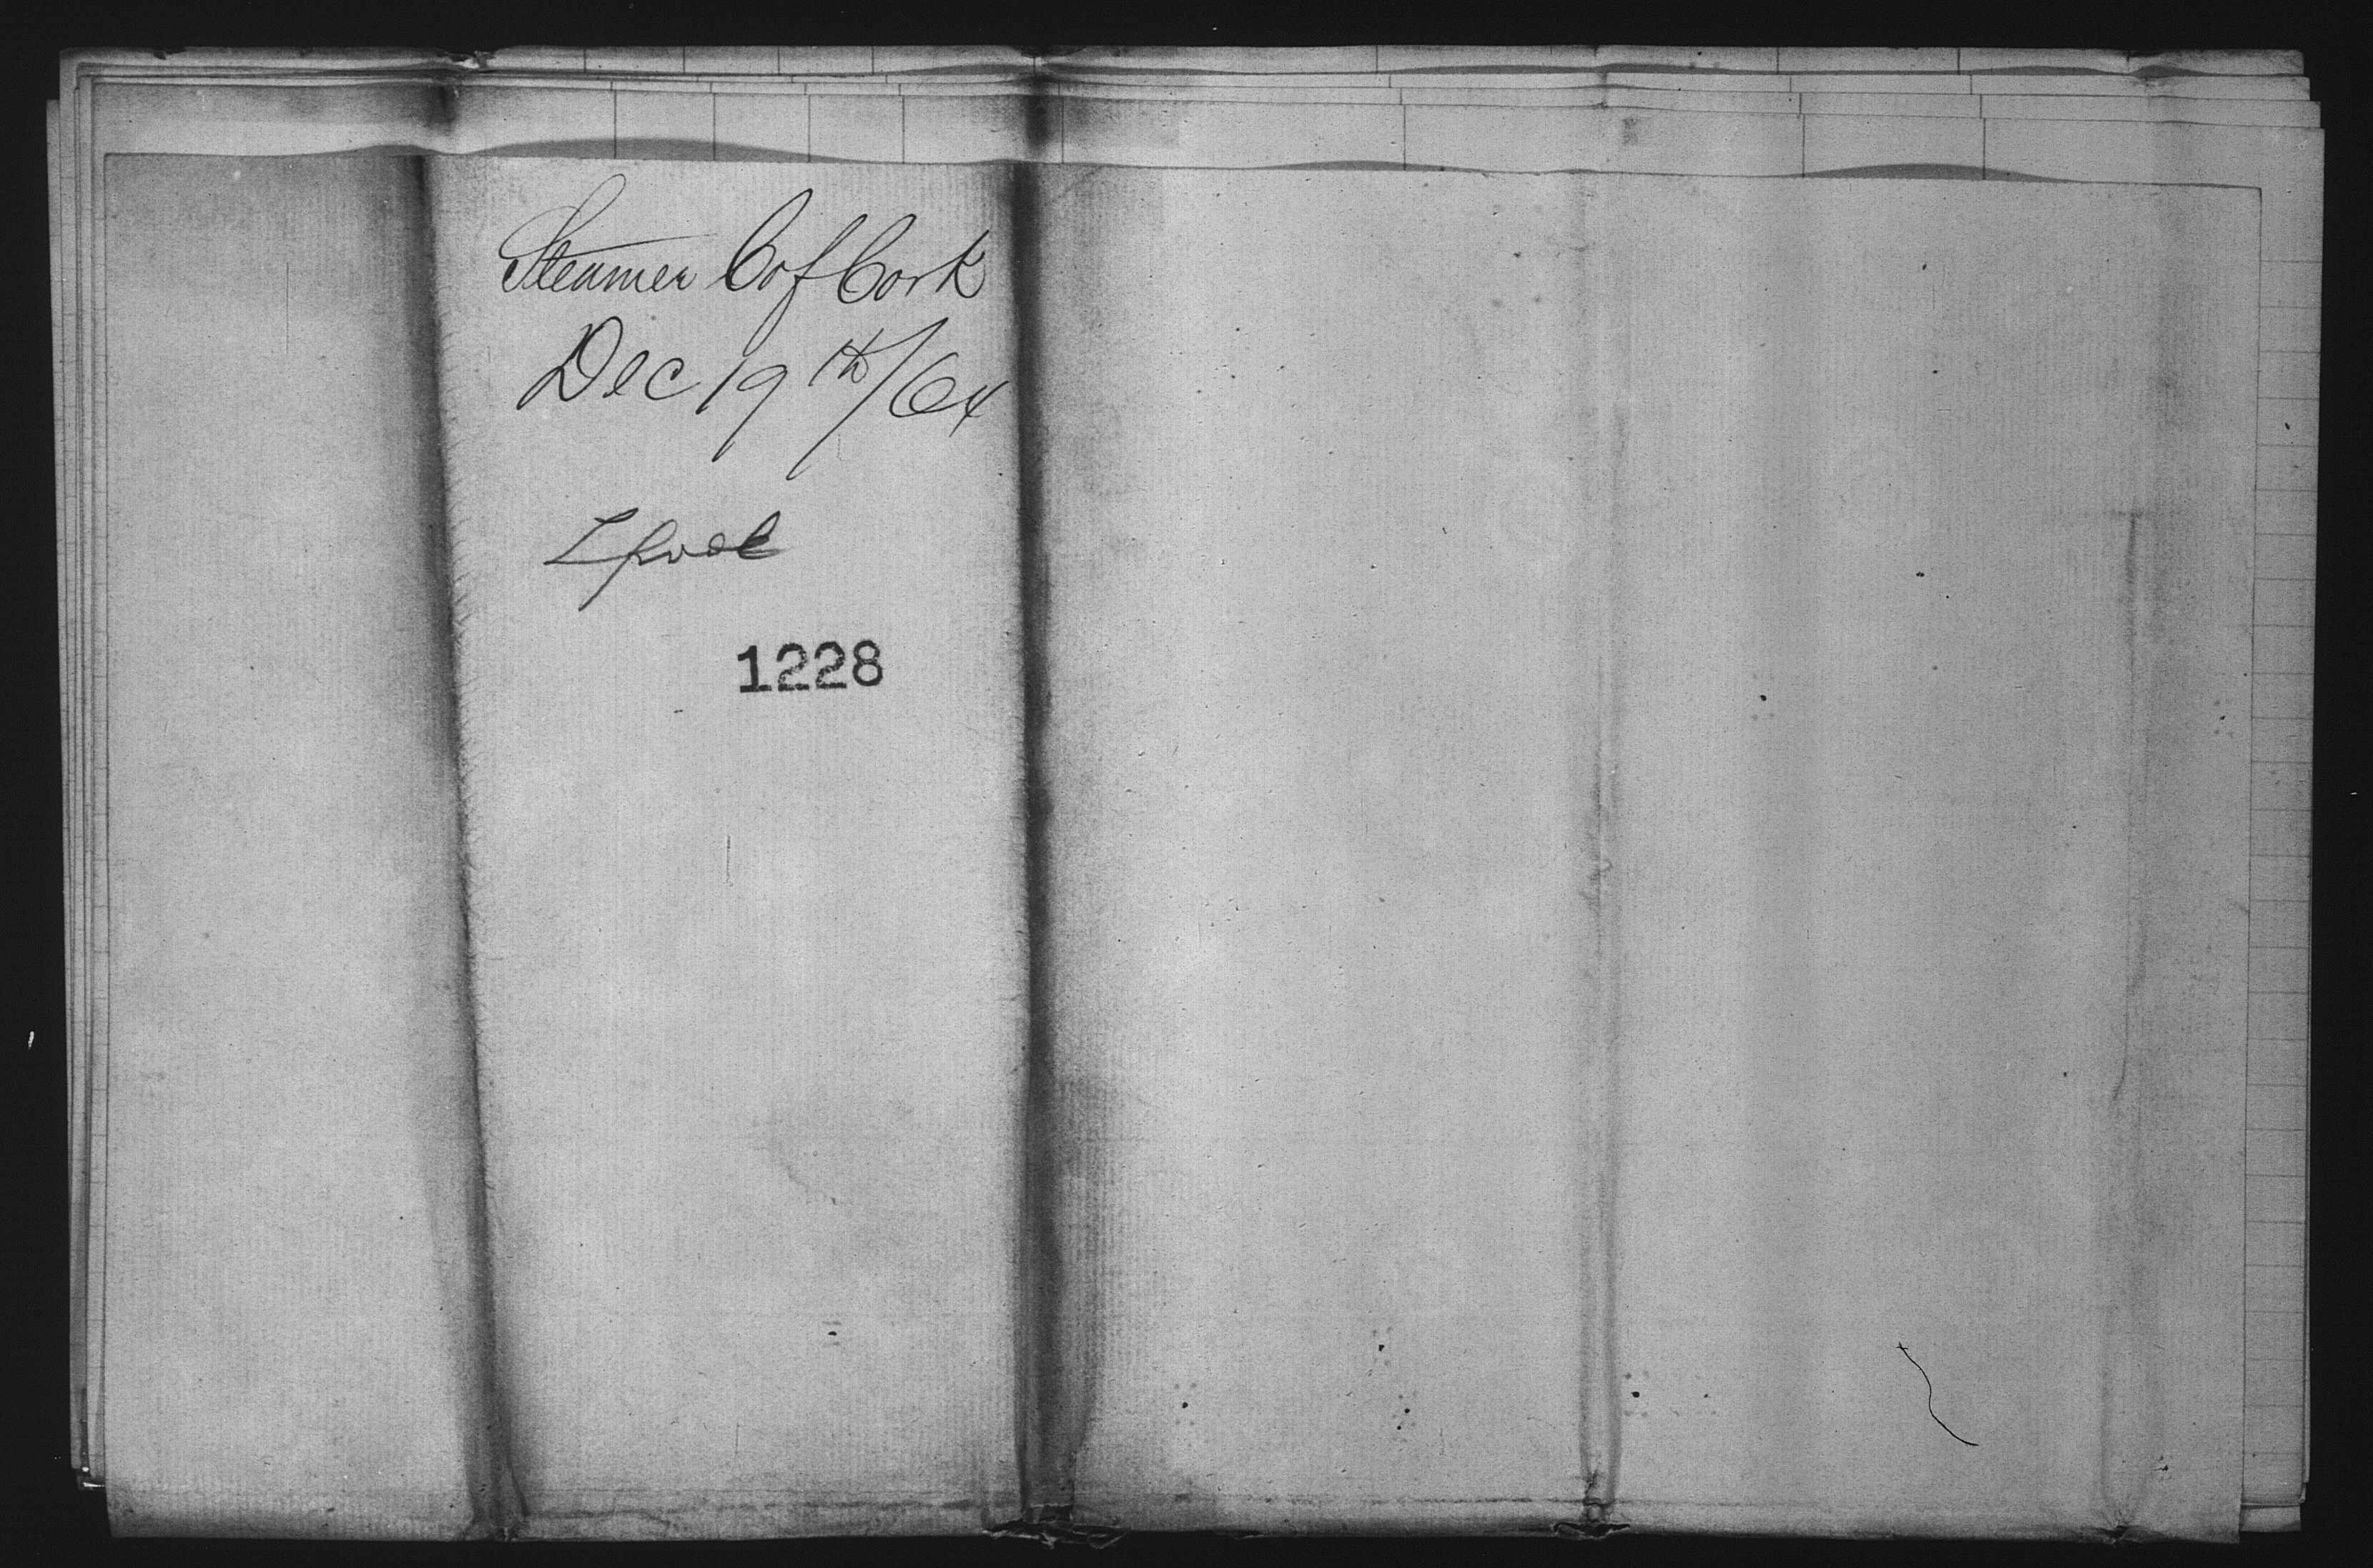 Steamer C of Cork
Dec 19th/64
Lpool
1228